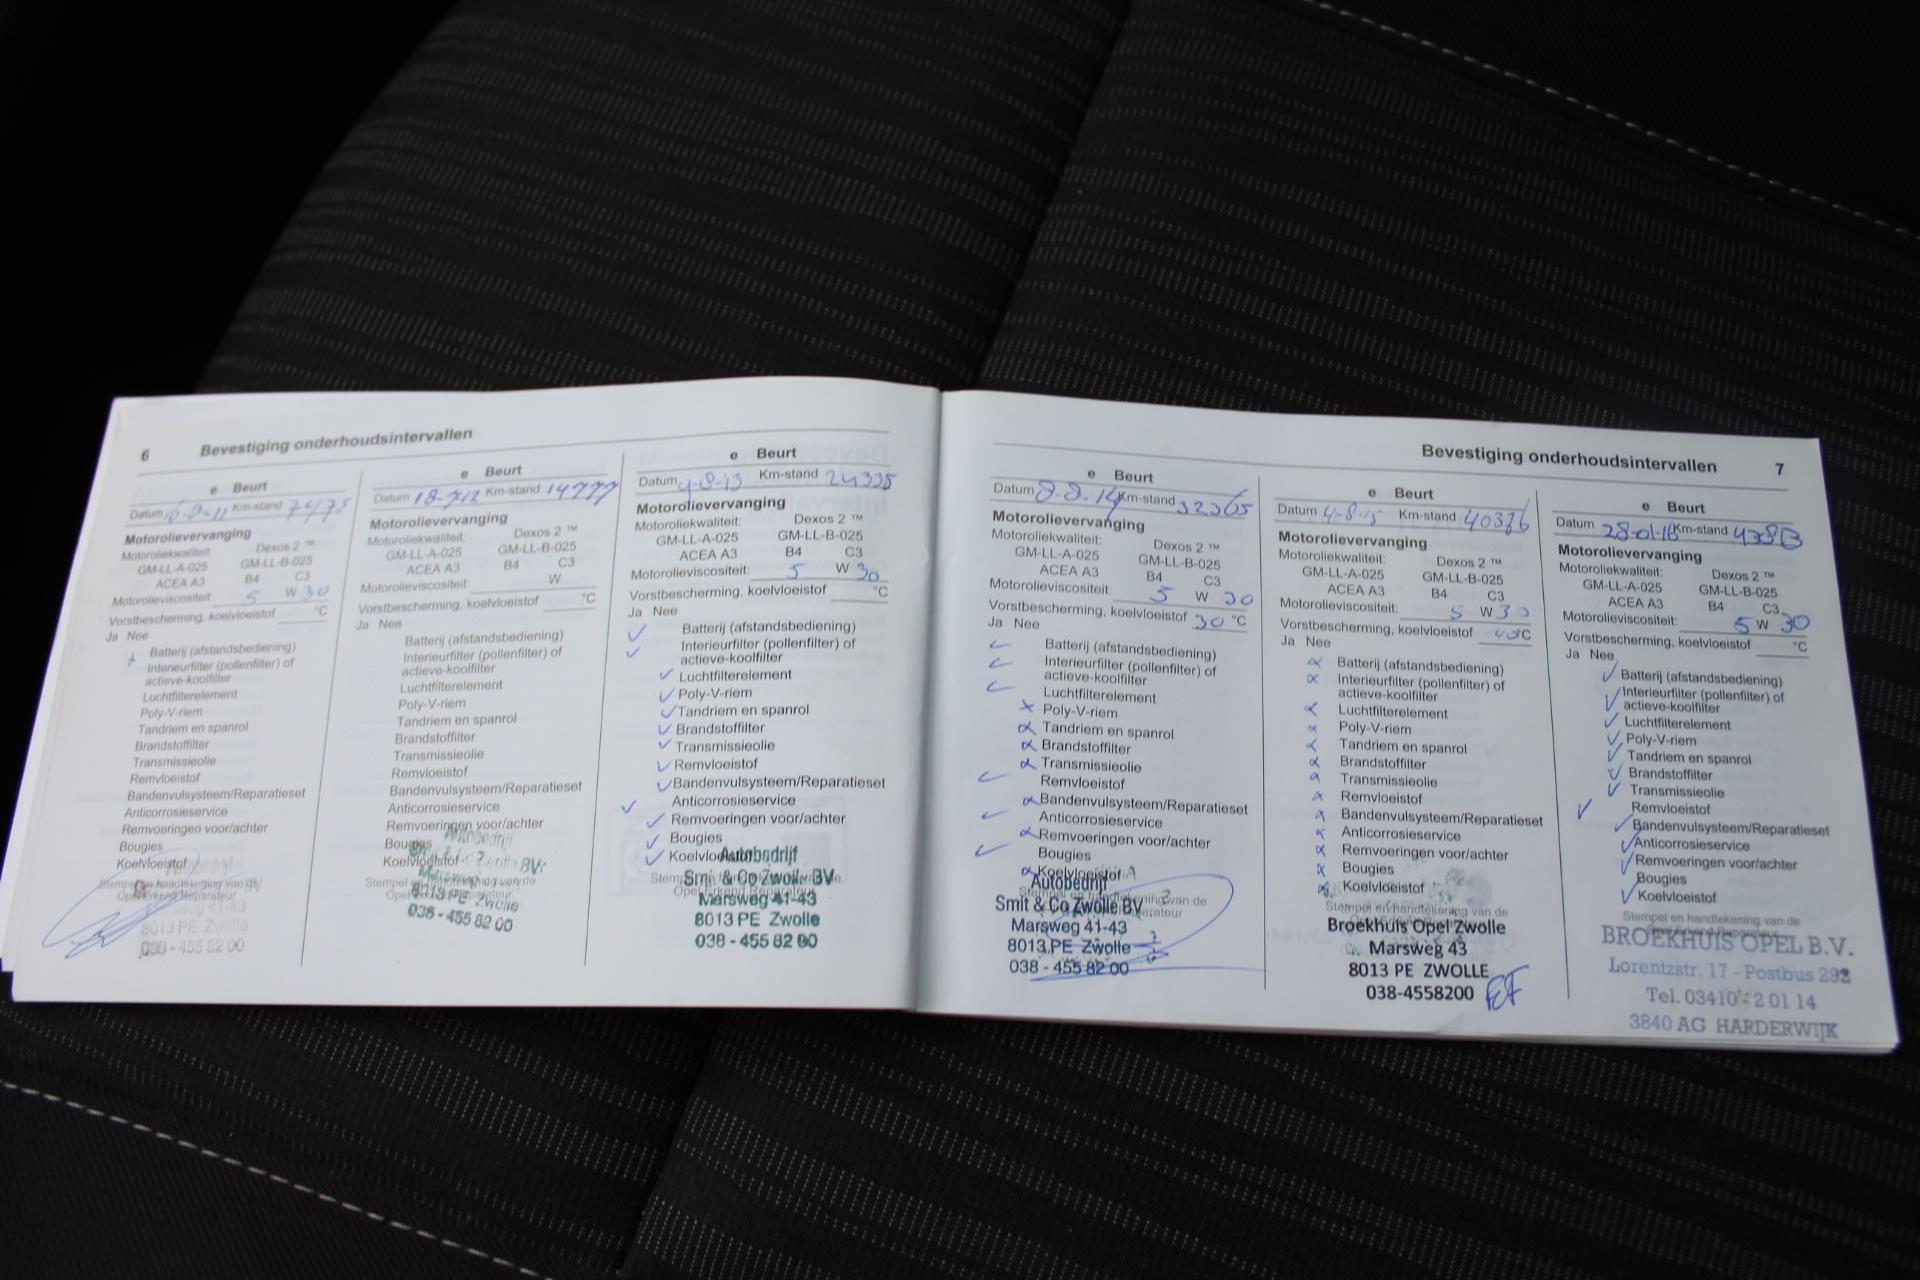 6 Bevestiging onderhoudsintervallen
e Beurt
Datum Km-stand
Motorolievervanging
Motoroliekwaliteit: Dexos 2 ™
GM-LL-A-025 GM-LL-B-025
ACEA A3 B4 C3
Motorolieviscositeit: 5 W 30
Vorstbescherming, koelvloeistof °C
Ja Nee
Batterij (afstandsbediening)
Interieurfilter (pollenfilter) of
actieve-koolfilter
Luchtfilterelement
Poly-V-riem
Tandriem en spanrol
Brandstoffilter
Transmissieolie
Remvloeistof
Bandenvulsysteem/Reparatieset
Anticorrosieservice
Remvoeringen voor/achter
Bougies
Koelvloeistof
Stempel en handtekening van de
Opel Erkend Reparateur
8013 PE Zwolle
038 - 455 82 00
e Beurt
Datum 18-7-12 Km-stand 14777
Motorolievervanging
Motoroliekwaliteit: Dexos 2 ™
GM-LL-A-025 GM-LL-B-025
ACEA A3 B4 C3
Motorolieviscositeit: W
Vorstbescherming, koelvloeistof °C
Ja Nee
Batterij (afstandsbediening)
Interieurfilter (pollenfilter) of
actieve-koolfilter
Luchtfilterelement
Poly-V-riem
Tandriem en spanrol
Brandstoffilter
Transmissieolie
Remvloeistof
Bandenvulsysteem/Reparatieset
Anticorrosieservice
Remvoeringen voor/achter
Bougies
Koelvloeistof
Stempel en handtekening van de
8013 PE Zwolle
038 - 455 82 00
e Beurt
Datum 4-8-13 Km-stand 24335
Motorolievervanging
Motoroliekwaliteit: Dexos 2 ™
GM-LL-A-025 GM-LL-B-025
ACEA A3 B4 C3
Motorolieviscositeit: 5 W 30
Vorstbescherming, koelvloeistof °C
Ja Nee
Batterij (afstandsbediening)
Interieurfilter (pollenfilter) of
actieve-koolfilter
Luchtfilterelement
Poly-V-riem
Tandriem en spanrol
Brandstoffilter
Transmissieolie
Remvloeistof
Bandenvulsysteem/Reparatieset
Anticorrosieservice
Remvoeringen voor/achter
Bougies
Koelvloeistof
Autobedrijf
Smit & Co Zwolle BV
Opel Erkend Reparateur
Marsweg 41-43
8013 PE Zwolle
038 - 455 82 00
Bevestiging onderhoudsintervallen 7
e Beurt
Datum 8-8-14 Km-stand 32365
Motorolievervanging
Motoroliekwaliteit: Dexos 2 ™
GM-LL-A-025 GM-LL-B-025
ACEA A3 B4 C3
Motorolieviscositeit: 5 W 30
Vorstbescherming, koelvloeistof 30 °C
Ja Nee
Batterij (afstandsbediening)
Interieurfilter (pollenfilter) of
actieve-koolfilter
Luchtfilterelement
Poly-V-riem
Tandriem en spanrol
Brandstoffilter
Transmissieolie
Remvloeistof
Bandenvulsysteem/Reparatieset
Anticorrosieservice
Remvoeringen voor/achter
Bougies
Koelvloeistof
Autobedrijf
Smit & Co Zwolle BV
Marsweg 41-43
8013 PE Zwolle
038 - 455 82 00
e Beurt
Datum 4-8-15 Km-stand 40376
Motorolievervanging
Motoroliekwaliteit: Dexos 2 ™
GM-LL-A-025 GM-LL-B-025
ACEA A3 B4 C3
Motorolieviscositeit: 5 W 30
Vorstbescherming, koelvloeistof °C
Ja Nee
Batterij (afstandsbediening)
Interieurfilter (pollenfilter) of
actieve-koolfilter
Luchtfilterelement
Poly-V-riem
Tandriem en spanrol
Brandstoffilter
Transmissieolie
Remvloeistof
Bandenvulsysteem/Reparatieset
Anticorrosieservice
Remvoeringen voor/achter
Bougies
Koelvloeistof
Stempel en handtekening van de
Broekhuis Opel Zwolle
Marsweg 43
8013 PE ZWOLLE
038-4558200
e Beurt
Datum 28-01-16 Km-stand
Motorolievervanging
Motoroliekwaliteit: Dexos 2 ™
GM-LL-A-025 GM-LL-B-025
ACEA A3 B4 C3
Motorolieviscositeit: 5 W 30
Vorstbescherming, koelvloeistof °C
Ja Nee
Batterij (afstandsbediening)
Interieurfilter (pollenfilter) of
actieve-koolfilter
Luchtfilterelement
Poly-V-riem
Tandriem en spanrol
Brandstoffilter
Transmissieolie
Remvloeistof
Bandenvulsysteem/Reparatieset
Anticorrosieservice
Remvoeringen voor/achter
Bougies
Koelvloeistof
Stempel en handtekening van de
BROEKHUIS OPEL B.V.
Lorentzstr. 17 - Postbus 292
Tel. 03410 - 2 01 14
3840 AG HARDERWIJK